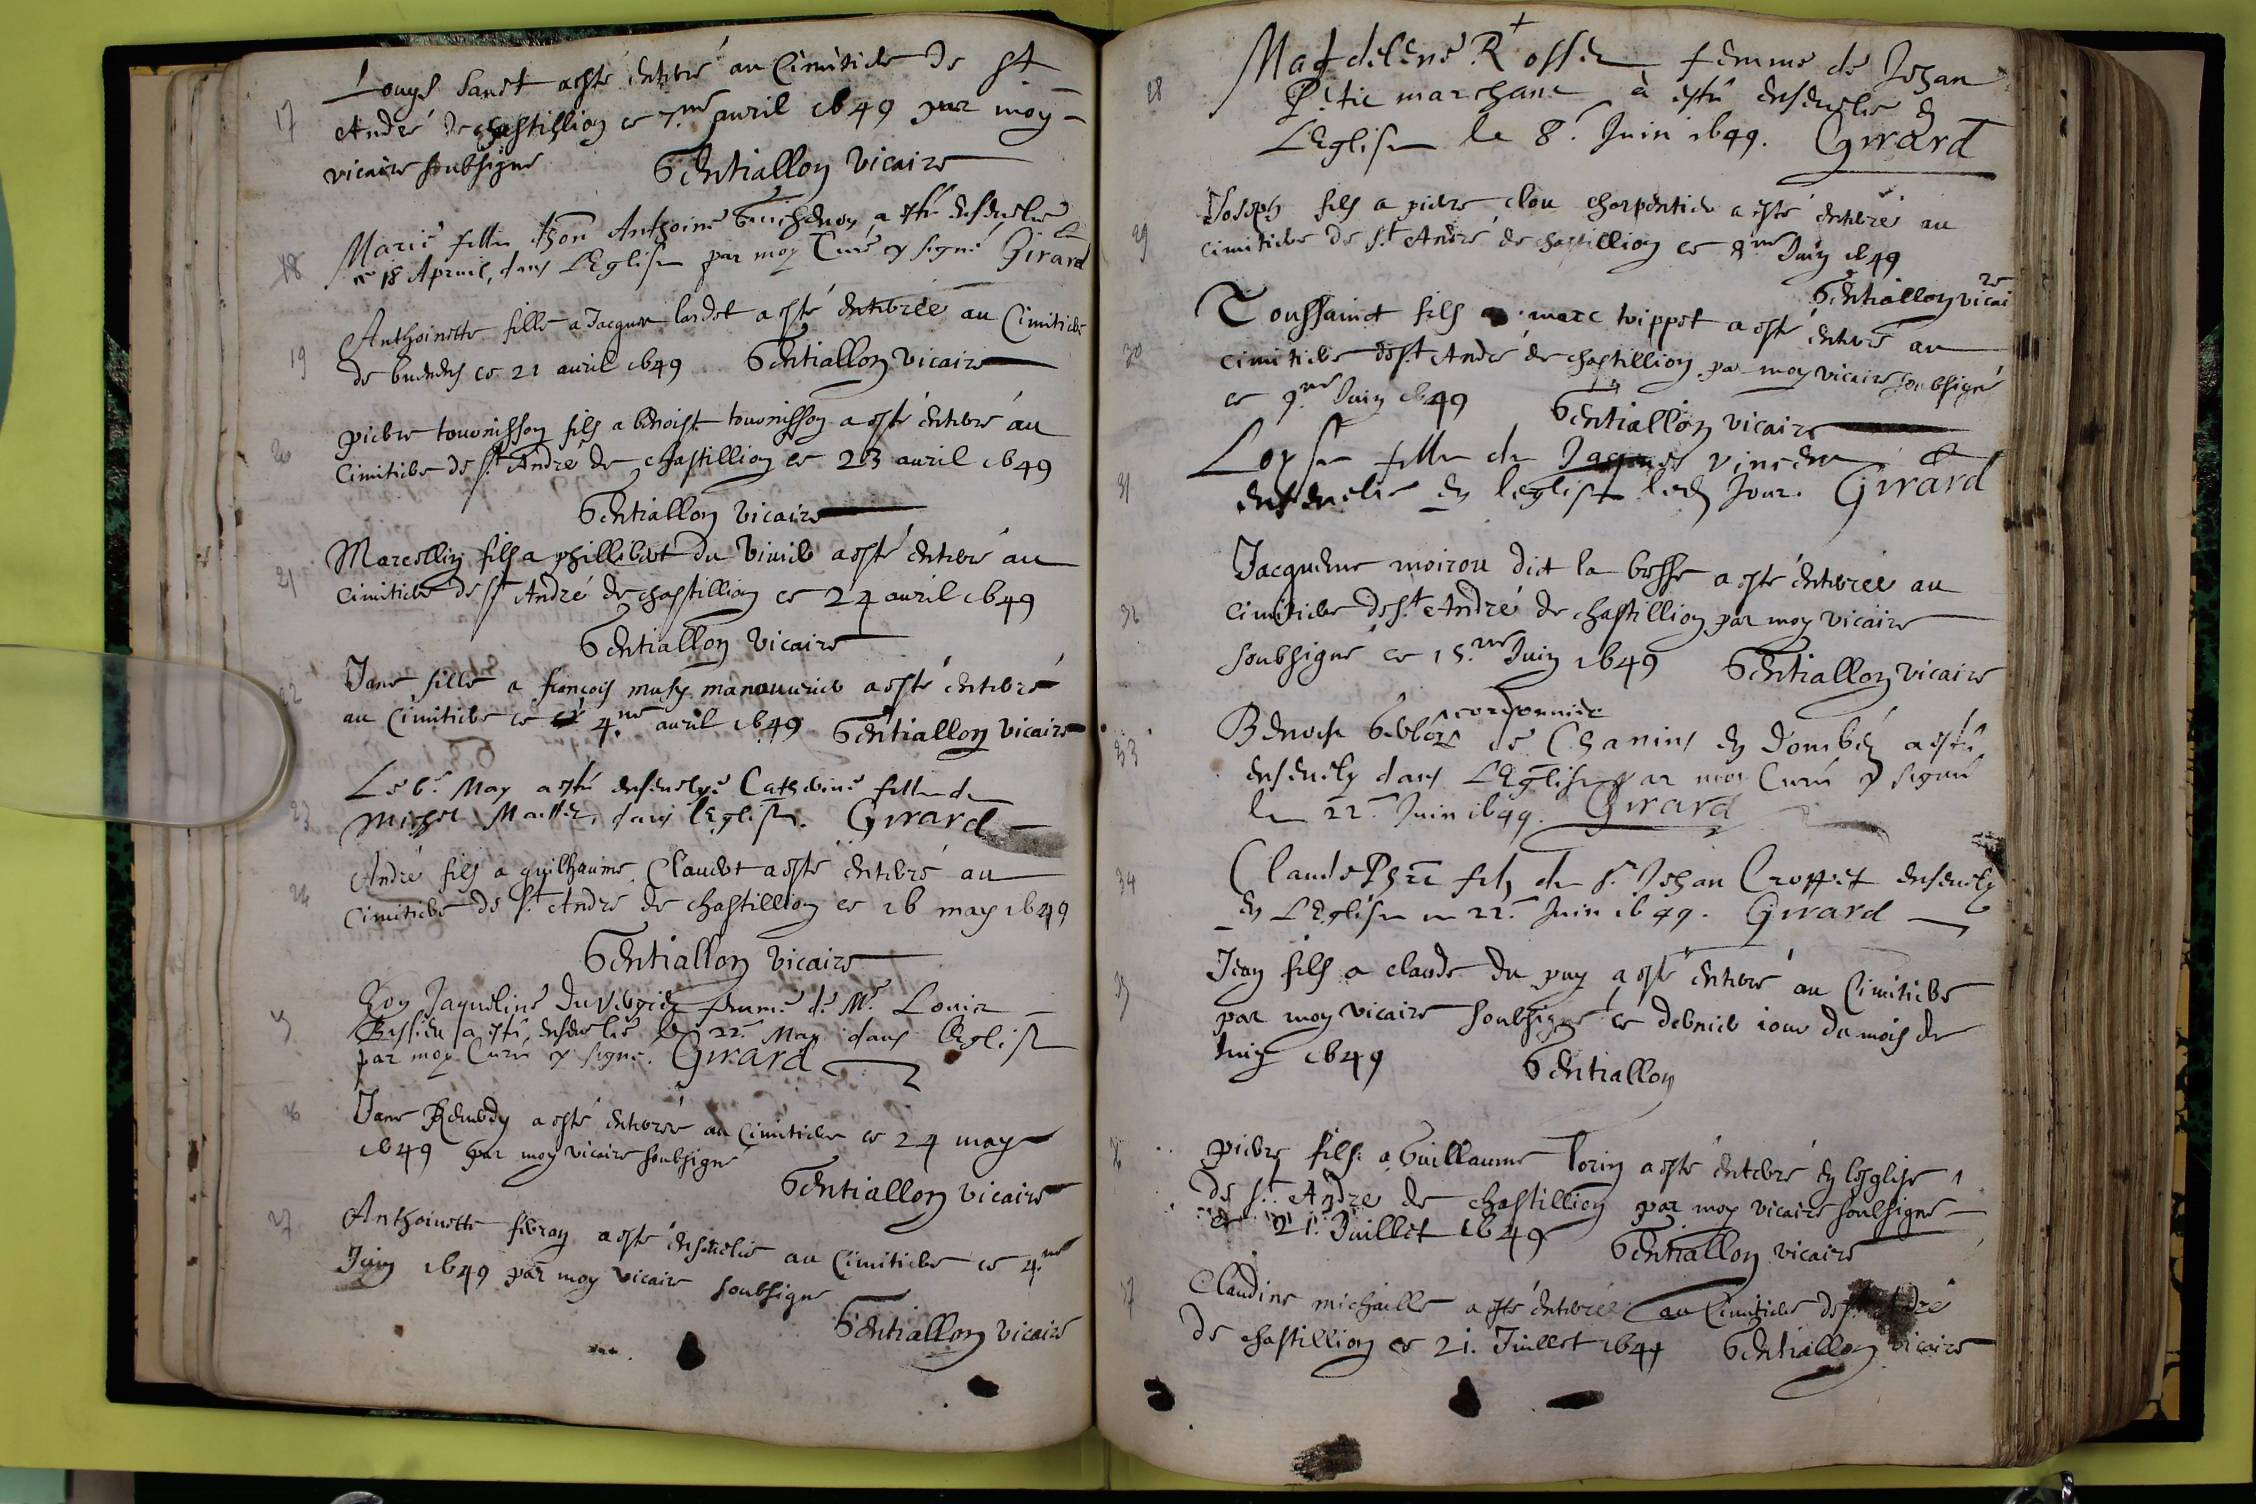 17
Louys sanet a esté enterré au Cimitiere de St
André de chastillion ce 7.me avril 1649 par moy
vicaire soubsigné Gentiallon vicaire
18
Marie fille Anthoine a esté ensevelie
ce 18 Apvril, dans L'Eglise par moy Curé signé Girard
19
Anthoinette fille a Jacques lardet a esté enterrée au Cimitiere
de ce 21 avril 1649 Gentiallon vicaire
20
pierre touonisson fils a benoist touonisson a esté enterré au
Cimitiere de St André de chastillion ce 23 avril 1649
Gentiallon vicaire
21
Marcellin fils a phillibert du Vivie a esté enterré au
cimitiere de St André de chastillion ce 24 avril 1649
Gentiallon vicaire
22
Jane fille a françois musy manouvrier a esté enterré
au Cimitiere ce 4.me avril 1649 Gentiallon vicaire
23
Le 6.e May a esté ensevelye Catherine fille de
Michel dans l'Eglise. Girard
24
André fils a guilhaume Claudet a esté enterré au
Cimitiere de St André de chastillion ce 16 may 1649
Gentiallon vicaire
25
Jaqueline du femme de M.e Louis
a esté ensevelie le 22.e May dans l'Eglise
par moy Curé signé. Girard
26
Jane a esté enterrée au Cimitiere ce 24 may
1649 par moy vicaire soubsigné
Gentiallon vicaire
27
Anthoinette a esté ensevelie au Cimitiere ce 4.me
Juin 1649 par moy vicaire soubsigne
Gentiallon vicaire
28
Magdelene Rosset femme de Jehan
Petit marchant à esté ensevelie en
L'Eglise le 8.e Juin 1649. Girard
29
Joseph fils a pierre clou charpentier a esté enterré au
cimitiere de St André de chastillion ce 8.me Juin 1649
Gentiallon vicaire
30
Toussainct fils a marc trippet a esté enterré au
cimitiere de St André de chastillion par moy vicaire soubsigné
ce 9.me Juin 1649 Gentiallon vicaire
31
Loyse fille de Jaques Vincent
ensevelie en l'eglise led Jour. Girard
32
Jacqueme moirou dict la bosse a esté enterrée au
Cimitiere de St André de chastillion par moy vicaire
soubsigné ce 15.me Juin 1649 Gentiallon vicaire
33
cordonnier
Benoist de Chanins en Dombes a esté
ensevely dans L'Eglise par moy Curé signé
le 22.e Juin 1649. Girard
34
Claude fils de Sr Jehan Croppet ensevely
en L'Eglise le 22.e Juin 1649. Girard
35
Jean fils a claude du puy a esté enterré au Cimitiere
par moy vicaire soubsigné ce dernier iour du mois de
Juin 1649 Gentiallon
36
pierre fils a Guillaume Torin a esté enterré en lesglise
de St André de chastillion par moy vicaire soubsigné
ce 21. Juillet 1649 Gentiallon vicaire
37
Claudine michaille a esté enterrée au Cimitiere de St André
de chastillion ce 21. Juillet 1649 Gentiallon vicaire